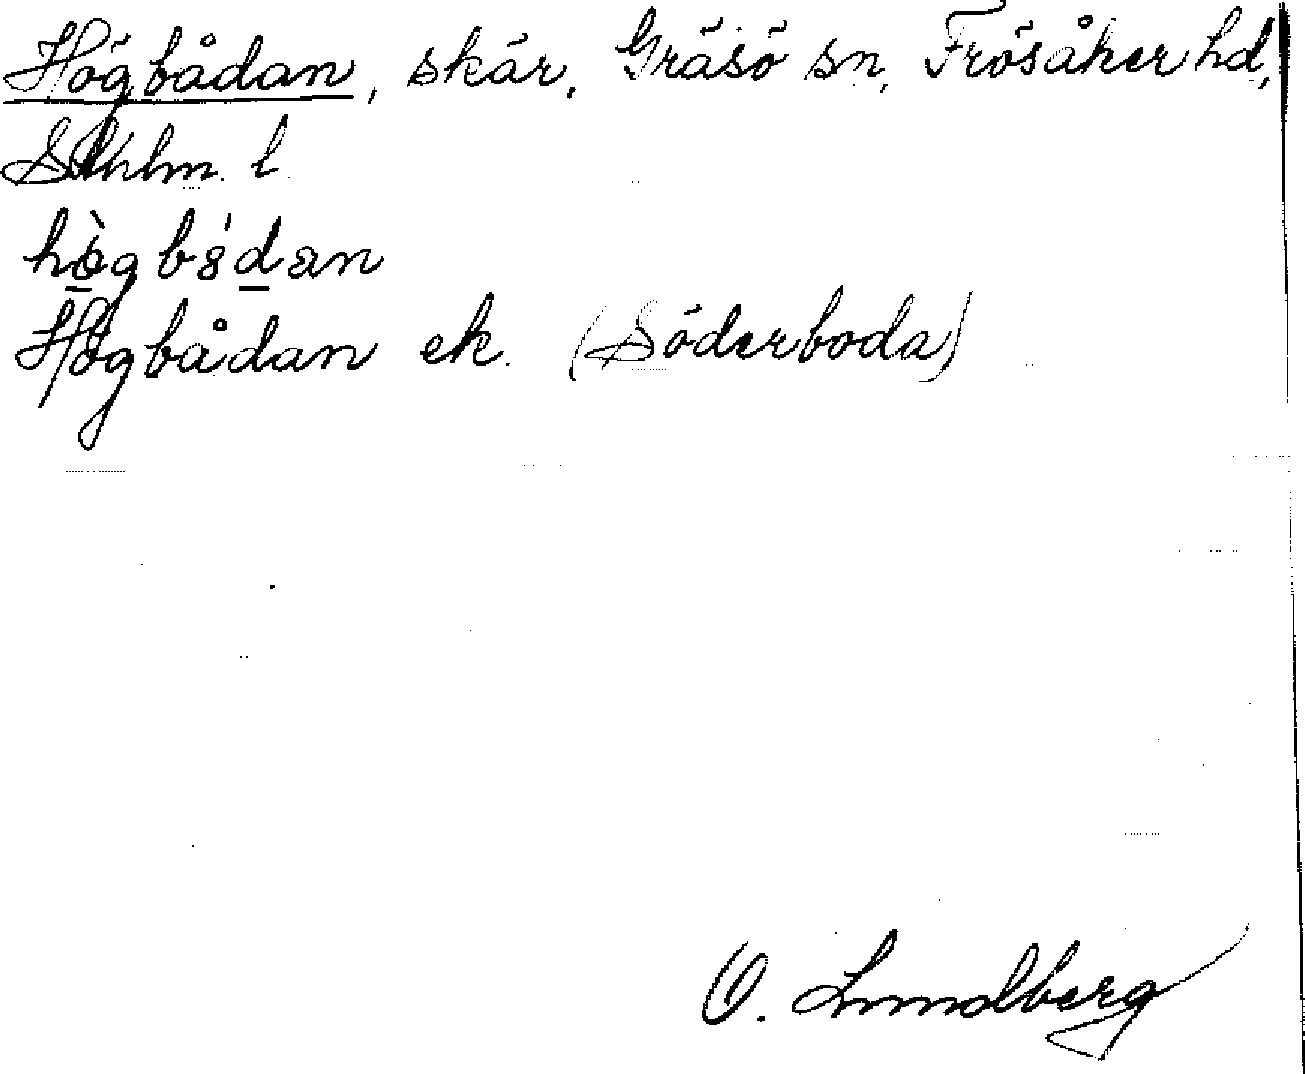 Högbådan, skär, Gräsö sn, Frösåker hd,
Sthlm. l
hø̀gbɜ́dan
Högbådan ek. (Söderboda)
O. Lundberg